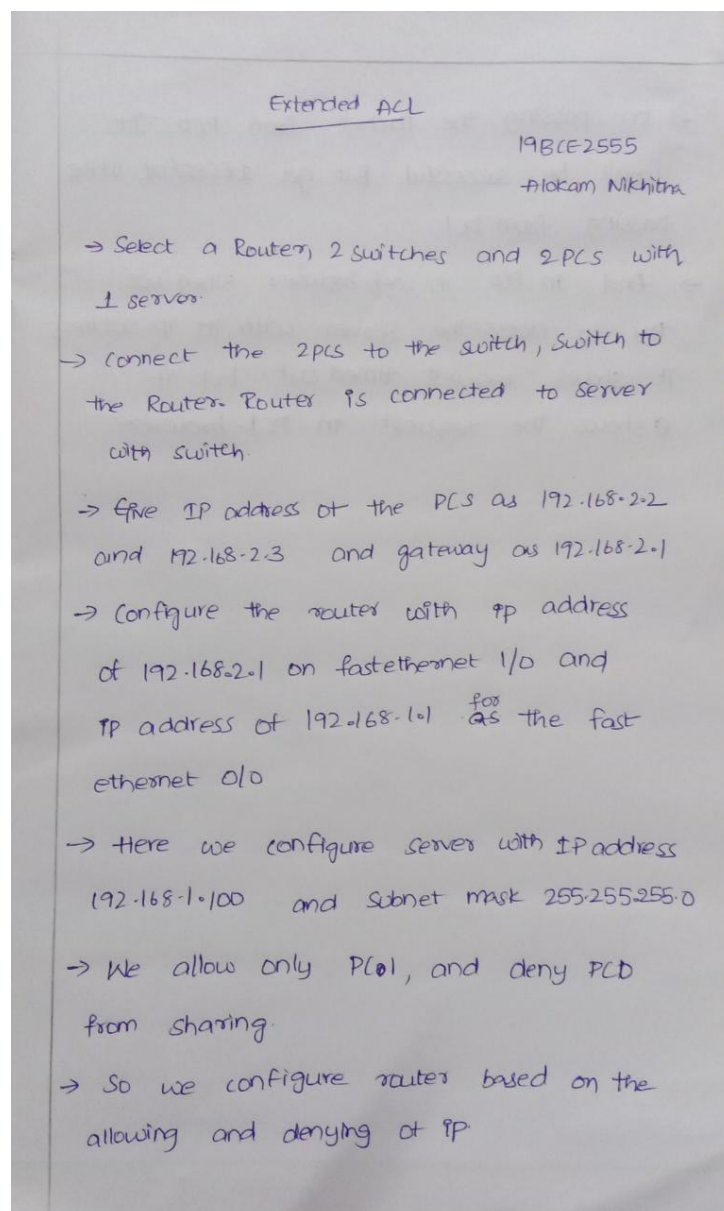 Extended ACL
19BCE2555
Alokam Nikhitha
→ Select a Router, 2 switches and 2PCs with
1 server.
→ Connect the 2PCs to the switch, switch to
the Router. Router is connected to server
with switch.
→ Give IP address of the PCs as 192.168.2.2
and 192.168.2.3 and gateway as 192.168.2.1
→ Configure the router with ip address
of 192.168.2.1 on fastethernet 1/0 and
ip address of 192.168.1.1 for the fast
ethernet 0/0
→ Here we configure server with IP address
192.168.1.100 and subnet mask 255.255.255.0
→ We allow only PC1, and deny PC0
from sharing.
→ So we configure router based on the
allowing and denying of ip.